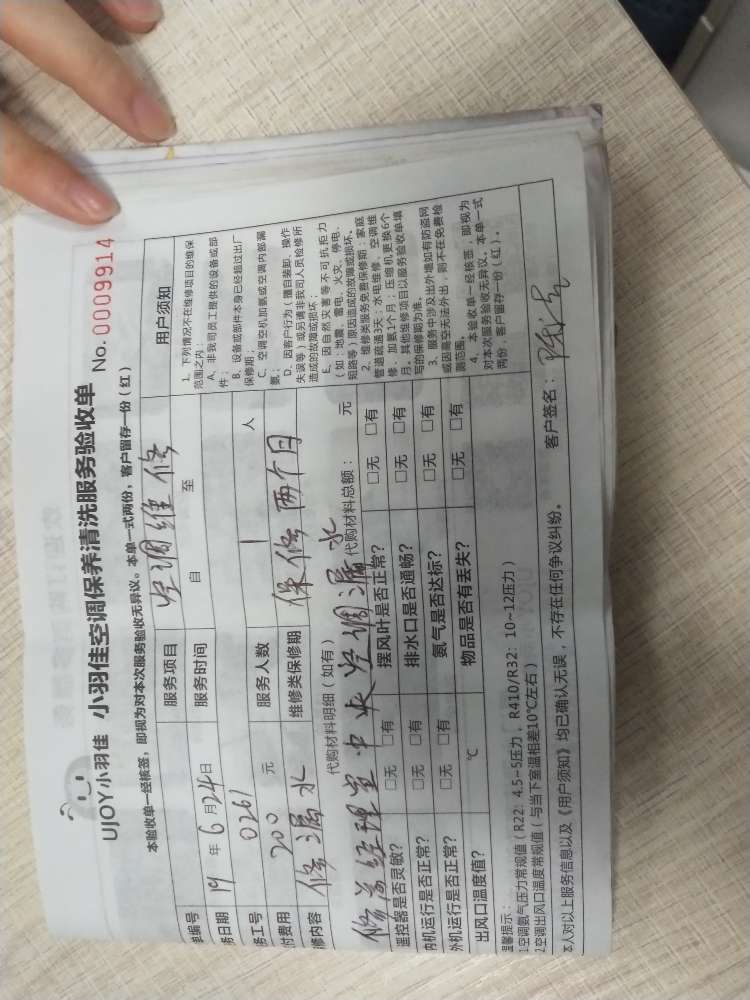 UJOY小羽佳 小羽佳空调保养清洗服务验收单 No. 0009914
本验收单一经核签，即视为对本次服务验收无异议。本单一式两份，客户留存一份（红）
单编号 服务项目 空调维修 用户须知
务日期 19 年 6 月 24 日 服务时间 自 至
务工号 0261 服务人数 1 人
付费用 200 元 维修类保修期 保修两个月
修内容 修漏水
代购材料明细（如有） 代购材料总额： 元
修总经理室中央空调漏水
遥控器是否灵敏？ □无 □有 摆风叶是否正常？ □无 □有
内机运行是否正常？ □无 □有 排水口是否通畅？ □无 □有
外机运行是否正常？ □无 □有 氨气是否达标？ □无 □有
出风口温度值？ ℃ 物品是否有丢失？ □无 □有
1、下列情况不在维修项目的维保
范围之内：
A、非我司员工提供的设备或部
件；
B、设备或部件本身已经超过出厂
保修期；
C、空调空机加氨或空调内部漏
氨；
D、因客户行为（擅自装卸、操作
失误等）或另请非我司人员检修所
造成的故障或损坏；
E、因自然灾害等不可抗拒力
（如：地震、雷电、火灾、停电、
短路等）原因造成的故障或损坏。
2、维修类服务免费保修期：家庭
管道疏通3天；水电维修、空调维
修、加氨1个月；压缩机更换6个
月。其他维修项目以服务验收单填
写的保修期为准。
3、服务中涉及出外墙如有防盗网
或因高空无法外出，则不在免费检
测范围。
4、本验收单一经核签，即视为
对本次服务验收无异议。本单一式
两份，客户留存一份（红）。
温馨提示：
1空调氨气压力常规值（R22：4.5~5压力，R410/R32：10~12压力）
2空调出风口温度常规值（与当下室温相差10℃左右）
本人对以上服务信息以及《用户须知》均已确认无误，不存在任何争议纠纷。 客户签名：